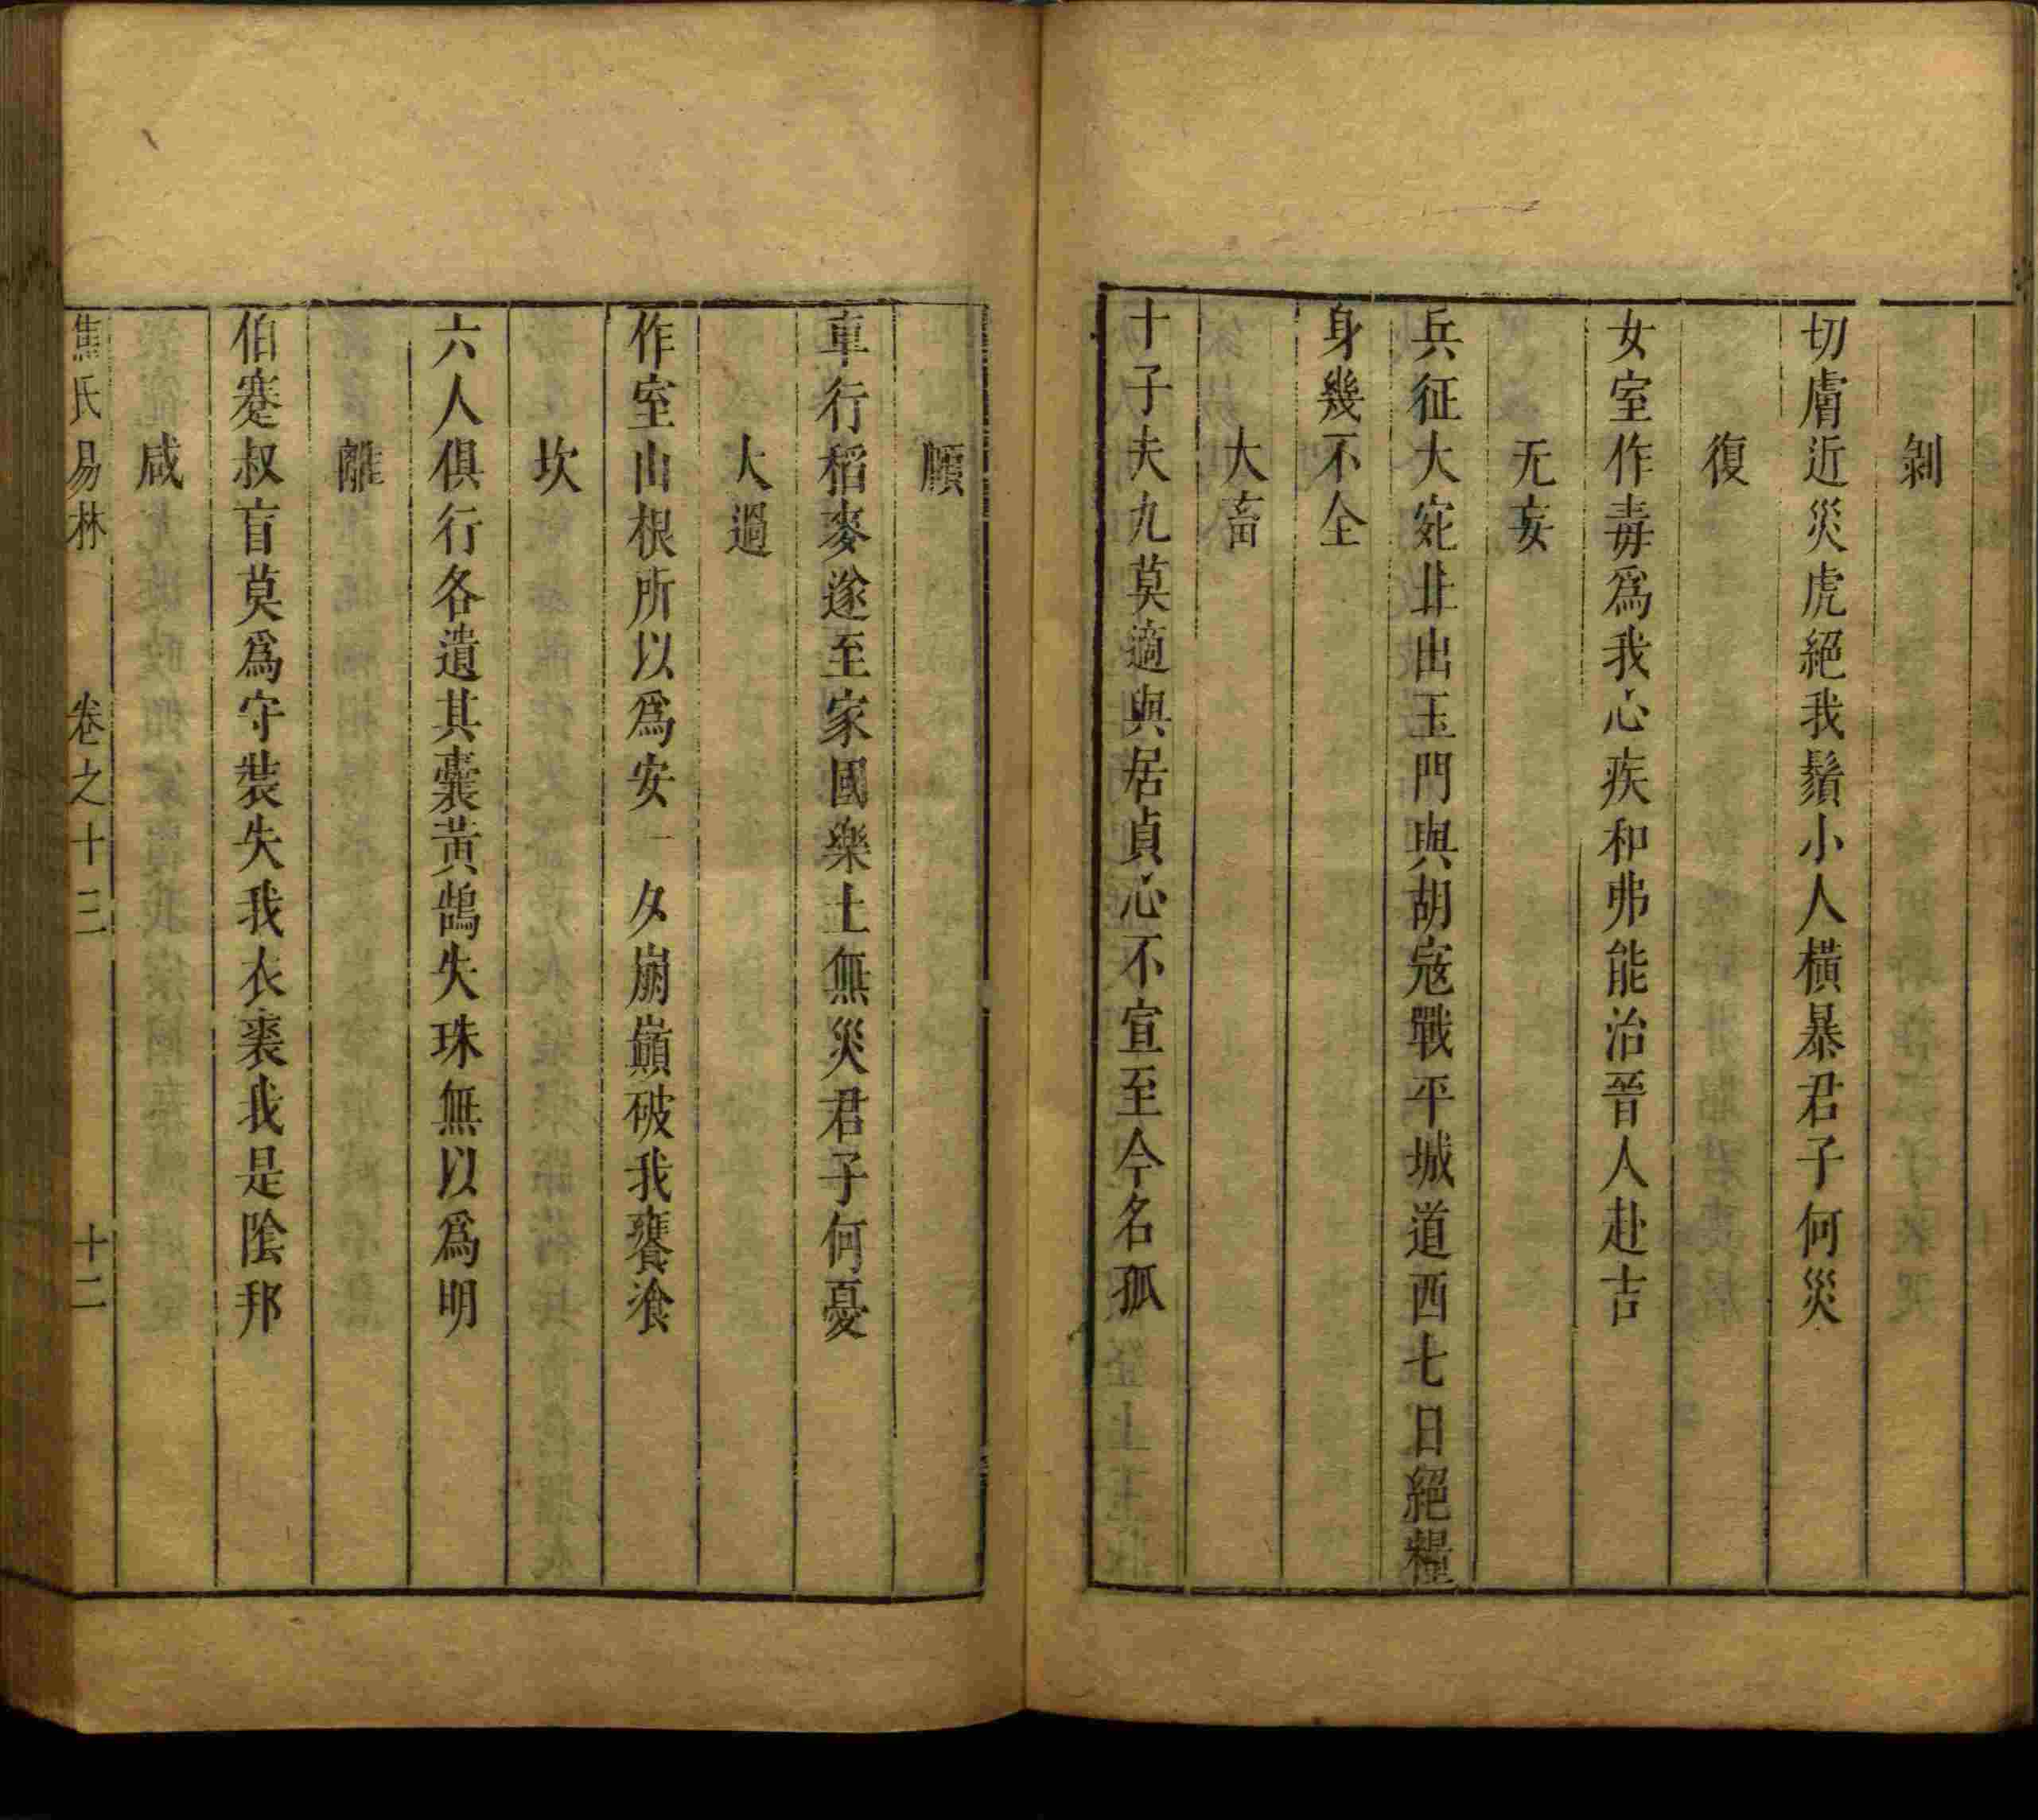 剝
切膚近災虎絕我鬚小人橫暴君子何災
復
女室作毒爲我心疾和弗能治晉人赴吉
无妄
兵征大宛北出玉門與胡寇戰平城道西七日絕糧
身幾不全
大畜
十子夫九莫適與居貞心不宣至今名孤
頤
車行稻麥遂至家國樂土無災君子何憂
大過
作室山根所以爲安一夕崩巔破我饔飧
坎
六人俱行各遺其囊黃鵠失珠無以爲明
離
伯蹇叔盲莫爲守裝失我衣裘我是陰邦
咸
焦氏易林　卷之十三　十二